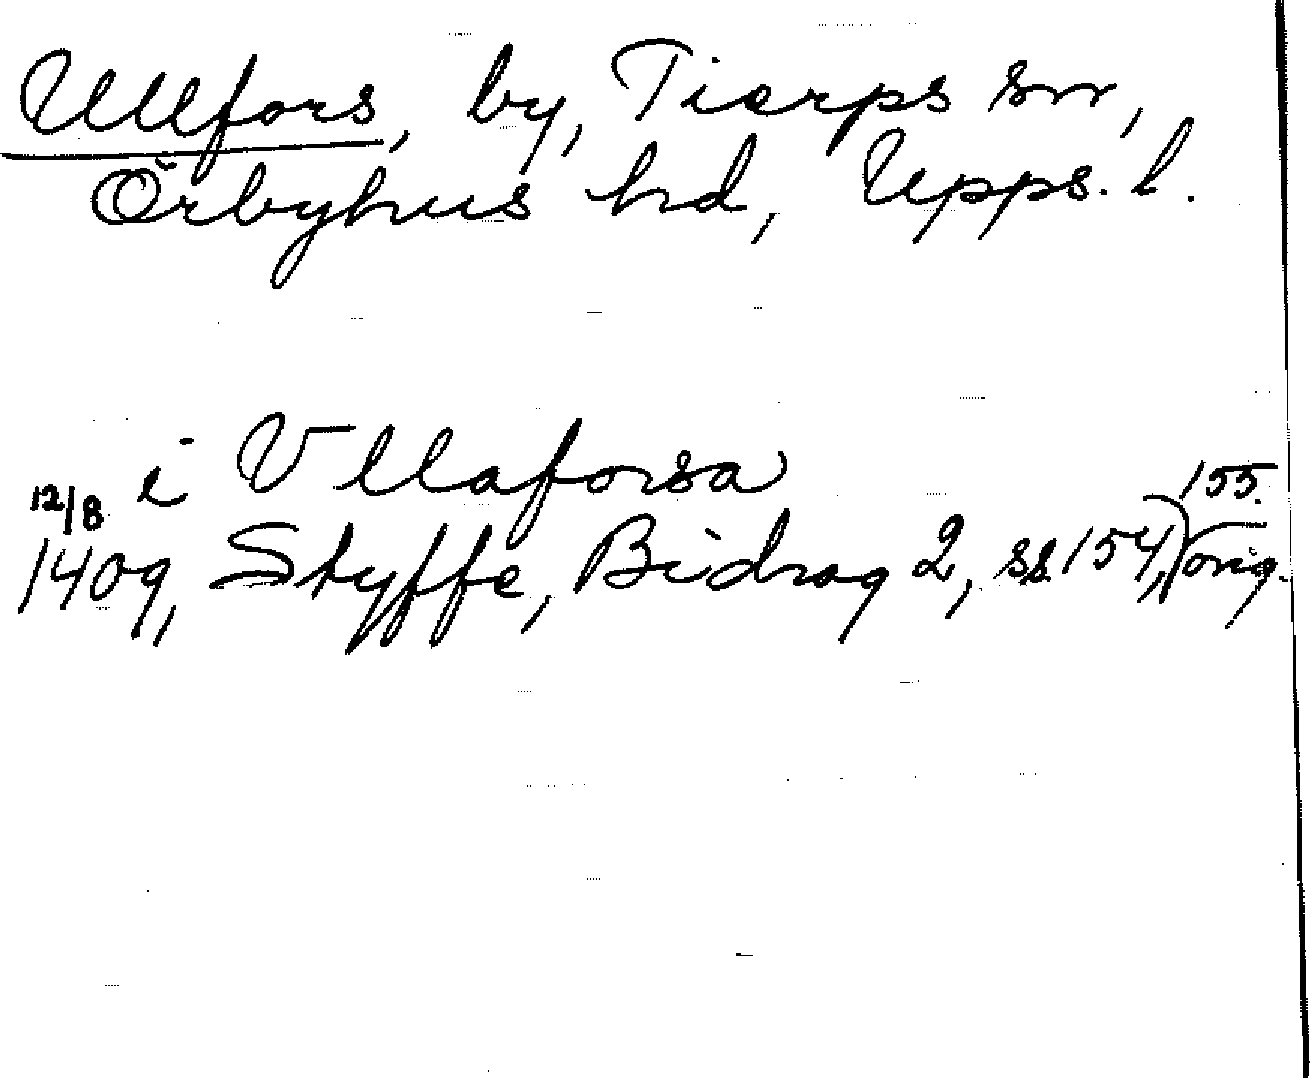 Ullfors, by, Tierps sn,
Örbyhus hd, Upps. l.
i Vllaforsa
12/8 1409, Styffe, Bidrag 2, ss 154, 155. orig.